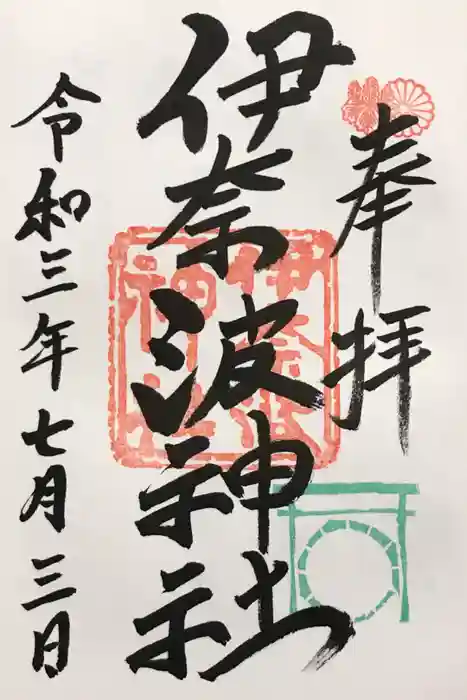 奉拝
伊奈波神社
令和三年七月三日